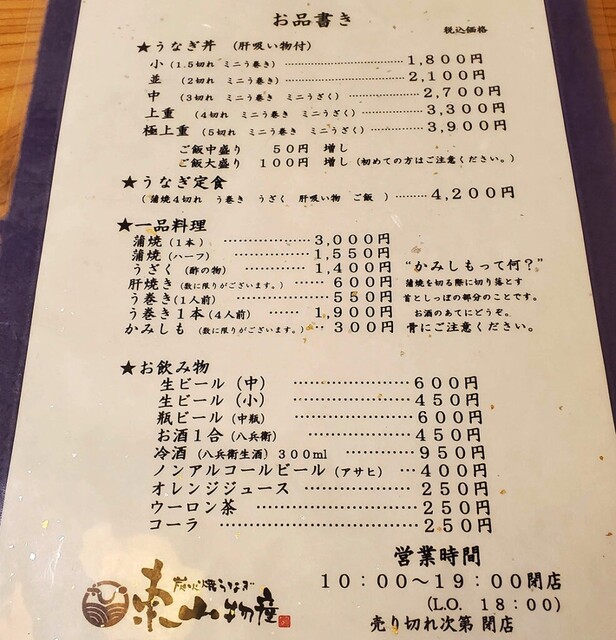 お品書き
税込価格
★うなぎ丼 (肝吸い物付)
小 (1.5切れ ミニう巻き) ……………………1,800円
並 (2切れ ミニう巻き) ……………………2,100円
中 (3切れ ミニう巻き ミニうざく) ……………2,700円
上重 (4切れ ミニう巻き ミニうざく) …………3,300円
極上重 (5切れ ミニう巻き ミニうざく) ………3,900円
ご飯中盛り 50円 増し
ご飯大盛り 100円 増し (初めての方はご注意ください。)
★うなぎ定食
(蒲焼4切れ う巻き うざく 肝吸い物 ご飯 ) ………4,200円
★一品料理
蒲焼 (1本) ……………………3,000円
蒲焼 (ハーフ) …………………1,550円
うざく (酢の物) ………………1,400円
肝焼き (数に限りがございます。) ………600円
う巻き (1人前) …………………550円
う巻き1本 (4人前) ……1,900円
かみしも (数に限りがございます。) …300円
“かみしもって何?”
蒲焼を切る際に切り落とす
首としっぽの部分のことです。
お酒のあてにどうぞ。
骨にご注意ください。
★お飲み物
生ビール (中) ……………………600円
生ビール (小) ……………………450円
瓶ビール (中瓶) …………………600円
お酒1合 (八兵衛) ………………450円
冷酒 (八兵衛生酒) 300ml …………950円
ノンアルコールビール (アサヒ) …400円
オレンジジュース ………………250円
ウーロン茶 ……………………250円
コーラ …………………………250円
営業時間
10:00～19:00閉店
(L.O. 18:00)
売り切れ次第 閉店
炭火焼うなぎ
東山物産